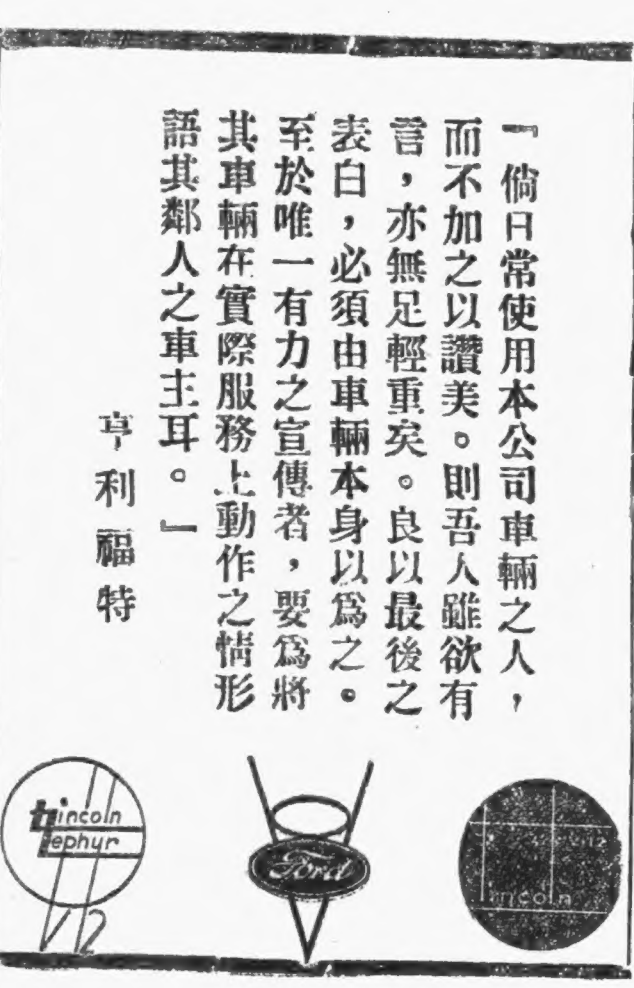 『倘日常使用本公司車輛之人，
而不加之以讚美。則吾人雖欲有
言，亦無足輕重矣。良以最後之
表白，必須由車輛本身以爲之。
至於唯一有力之宣傳者，要爲將
其車輛在實際服務上動作之情形
語其鄰人之車主耳。』
亨利福特
Lincoln
Zephyr
V12
Ford
Lincoln